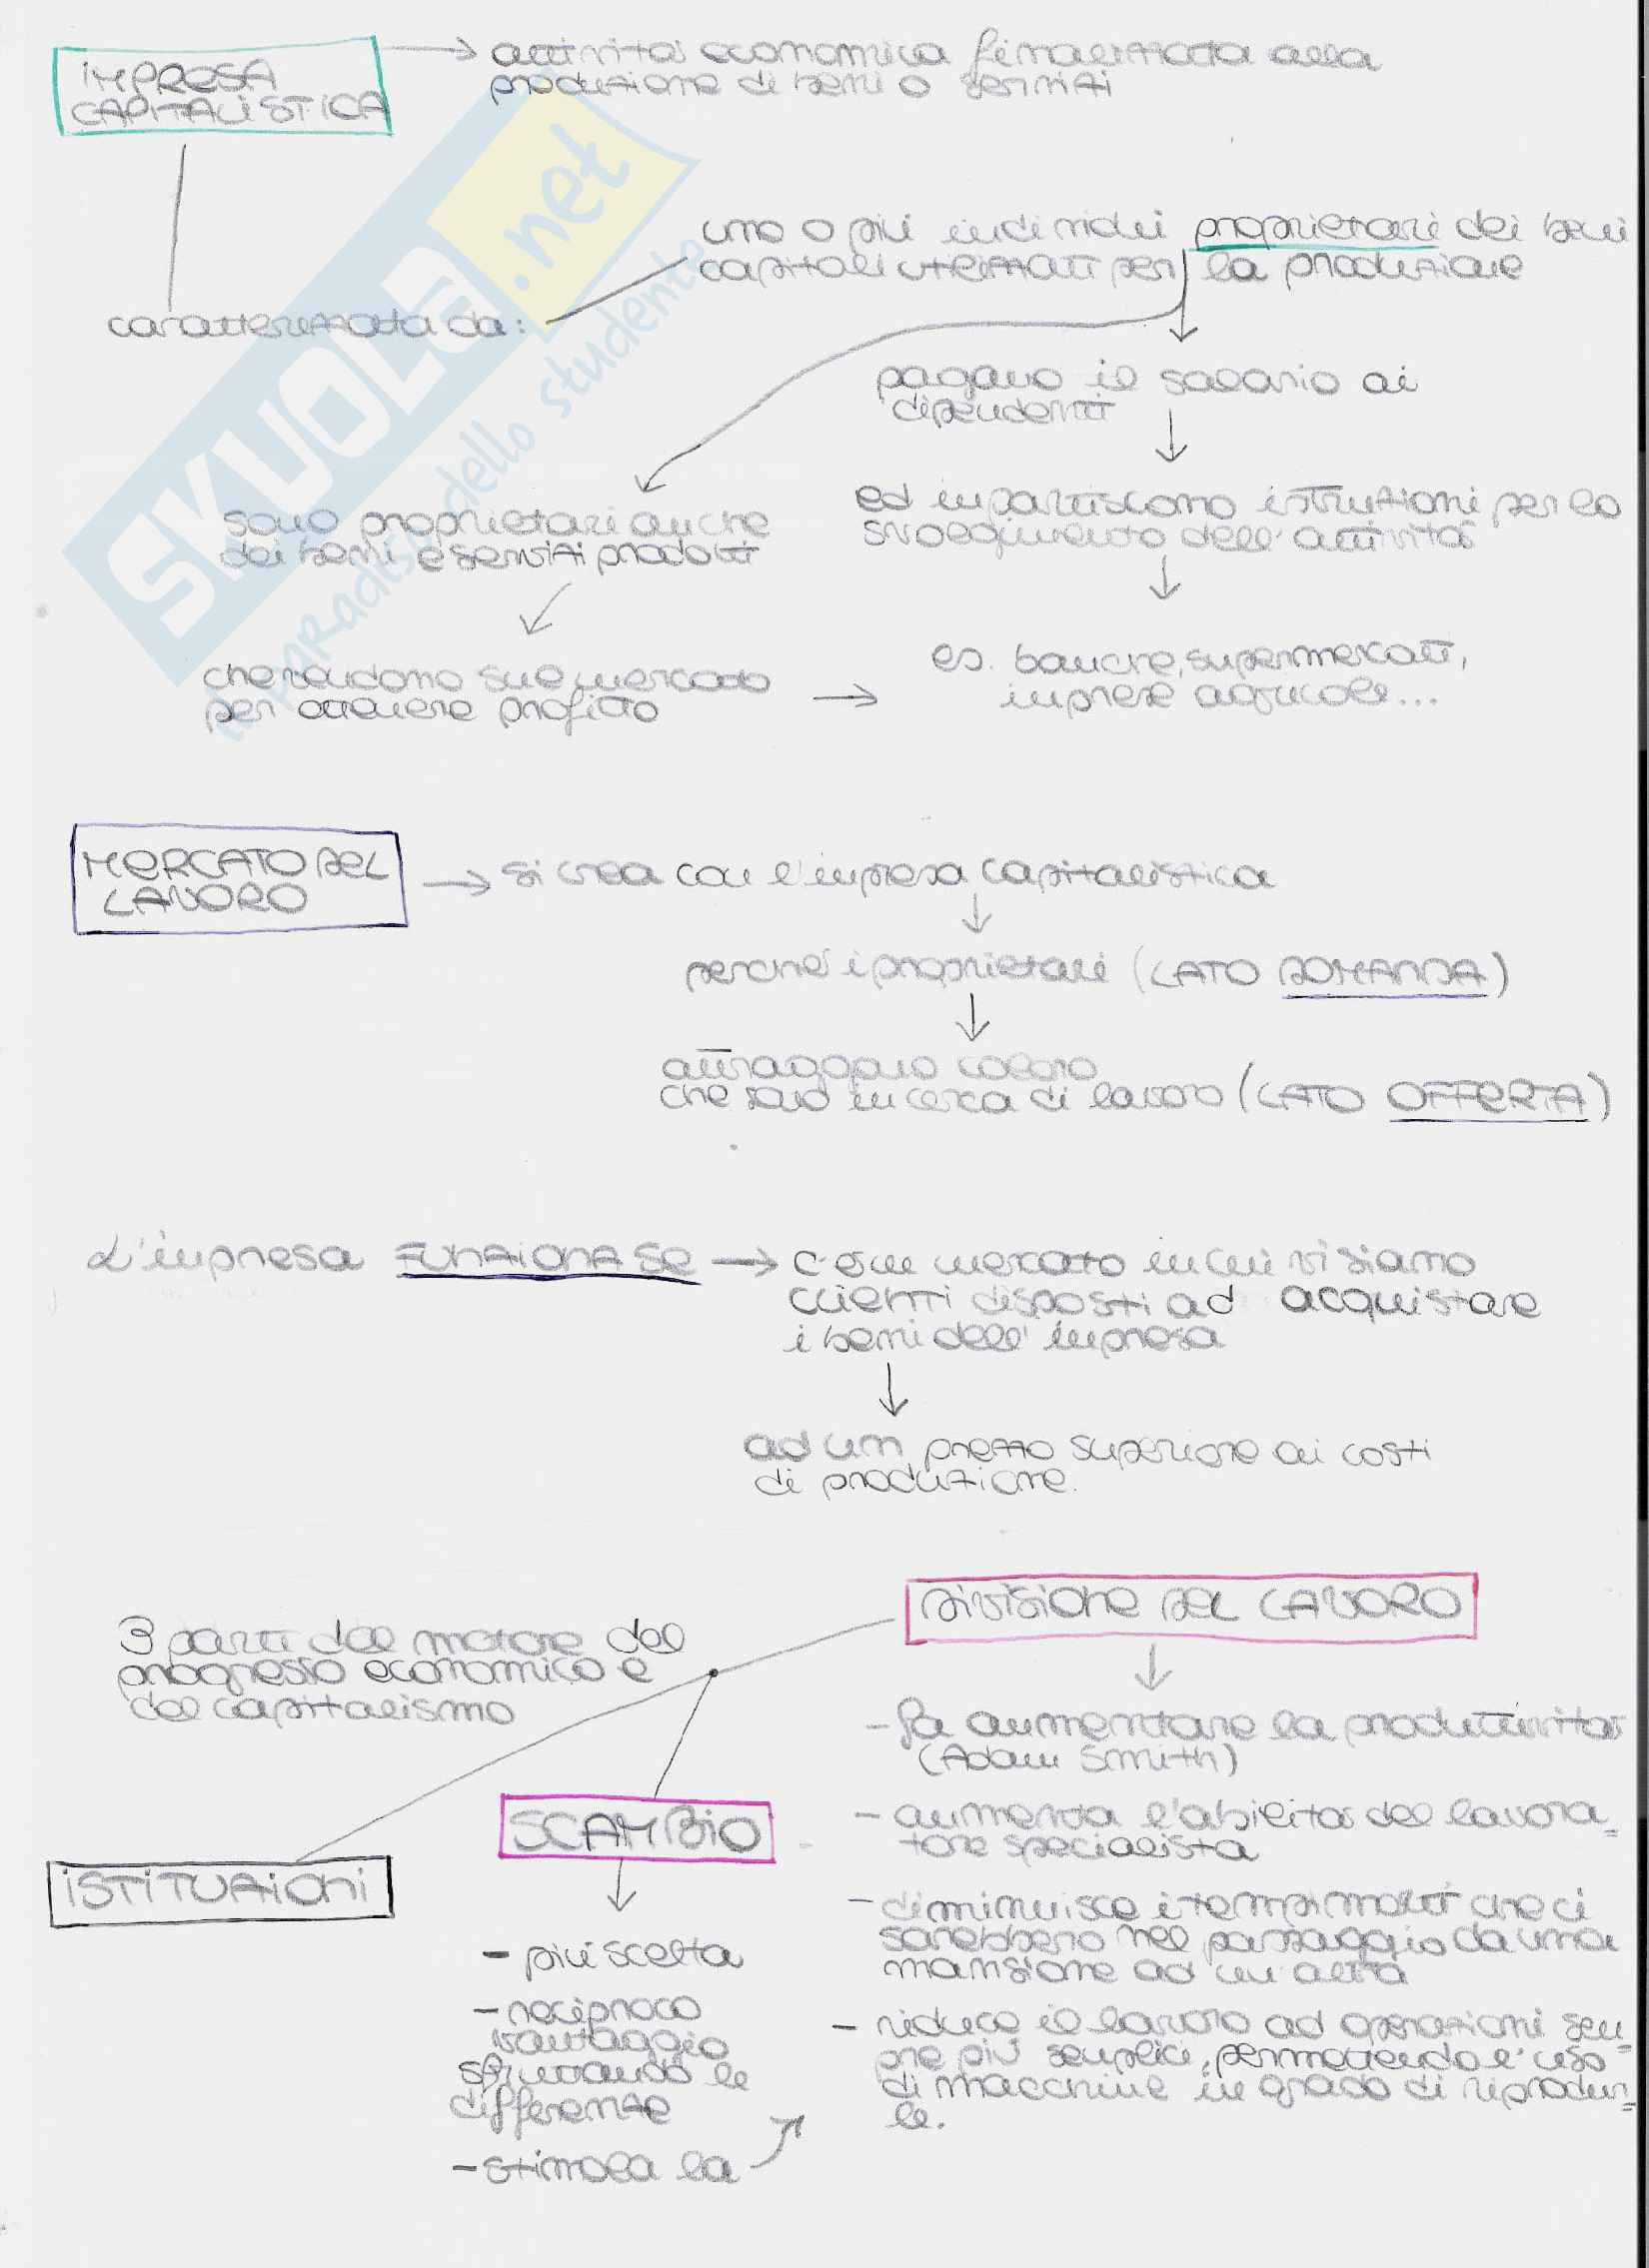 IMPRESA
CAPITALISTICA
attività economica finalizzata alla
produzione di beni o servizi
uno o più individui proprietari dei beni
capitali utilizzati per la produzione
caratterizzata da:
pagano il salario ai
dipendenti
ed impartiscono istruzioni per lo
svolgimento dell'attività
sono proprietari anche
dei beni e servizi prodotti
es. banche, supermercati,
imprese agricole...
che vendono sul mercato
per ottenere profitto
SKUOLA.net
il paradiso dello studente
MERCATO DEL
LAVORO
si crea con l'impresa capitalistica
perché i proprietari (LATO DOMANDA)
attraggono coloro
che sono in cerca di lavoro (LATO OFFERTA)
L'impresa FUNZIONA SE
c'è un mercato in cui vi siano
clienti disposti ad acquistare
i beni dell'impresa
ad un prezzo superiore ai costi
di produzione.
DIVISIONE DEL LAVORO
3 parti del motore del
progresso economico e
del capitalismo
- fa aumentare la produttività
(Adam Smith)
SCAMBIO
- aumenta l'abilità del lavora=
tore specialista
ISTITUZIONI
- diminuisce i tempi morti che ci
sarebbero nel passaggio da una
mansione ad un'altra
- più scelta
- reciproco
vantaggio
sfruttando le
differenze
- stimola la
- riduce il lavoro ad operazioni sem=
pre più semplici, permettendo l'uso
di macchine in grado di riprodur=
le.